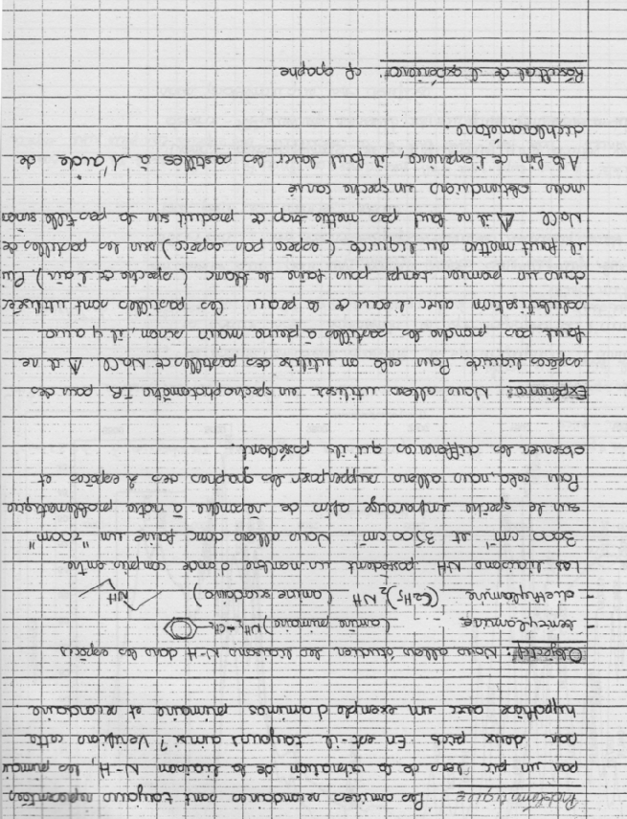 Problématique : Les amines secondaires sont toujours représentées
par un pic lors de la vibration de la liaison N-H, les primair
par deux pics. En est-il toujours ainsi ? Vérifions cette
hypothèse avec un exemple d'amines primaire et secondaire.
Objectif : Nous allons étudier les liaisons N-H dans les espèces
- benzylamine (amine primaire) NH2-CH2-
- diethylamine (C2H5)2 NH (amine secondaire) NH
Les liaisons NH possèdent un nombre d'onde compris entre
3000 cm-1 et 3500 cm-1. Nous allons donc faire un "zoom"
sur le spectre infrarouge afin de répondre à notre problématique
Pour cela, nous allons supperposer les graphes des 2 espèces et
observer les différences qu'ils possèdent.
Expérience : Nous allons utiliser un spectrophotomètre IR pour des
espèces liquide. Pour cela on utilise des pastilles de NaCl ⚠ il ne
faut pas prendre les pastilles à pleine main sinon, il y aura
solubilisation avec l'eau de la peau. Ces pastilles sont utilisées
dans un premier temps pour faire le blanc (spectre de l'air). Pui
il faut mettre du liquide (espèce par espèce) sur les pastilles de
NaCl ⚠ il ne faut pas mettre trop de produit sur la pastille sinon
nous obtiendrons un spectre carré
A la fin de l'expérience, il faut laver les pastilles à l'aide de
dichlorométane.
Résultat de l'expérience : cf graphe